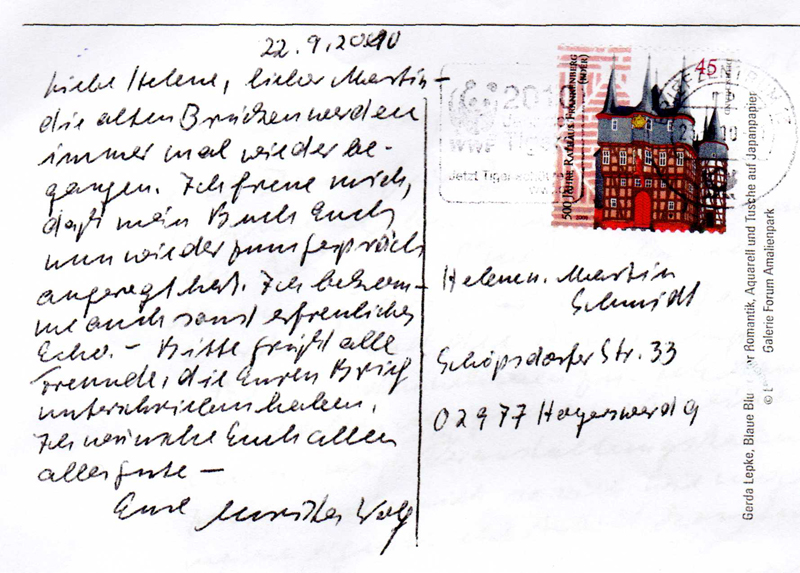 22.9.2010
Liebe Helene, lieber Martin –
die alten Brücken werden
immer mal wieder be-
gangen. Ich freue mich,
daß mein Buch Euch
nun wieder zum Gespräch
angeregt hat. Ich bekom-
me auch sonst erfreuliches
Echo. – Bitte grüßt alle
Freunde, die Euren Brief
unterschrieben haben.
Ich wünsche Euch allen
alles Gute –
Eure Wolf
45
500 JAHRE RATHAUS FRANKENBERG
(EDER)
2010
WWF Tiger
Jetzt Tiger
Helene u. Martin
Schmidt
Schöpsdorfer Str. 33
02977 Hoyerswerda
Gerda Lepke, Blaue Blu er Romantik, Aquarell und Tusche auf Japanpapier
© L Galerie Forum Amalienpark